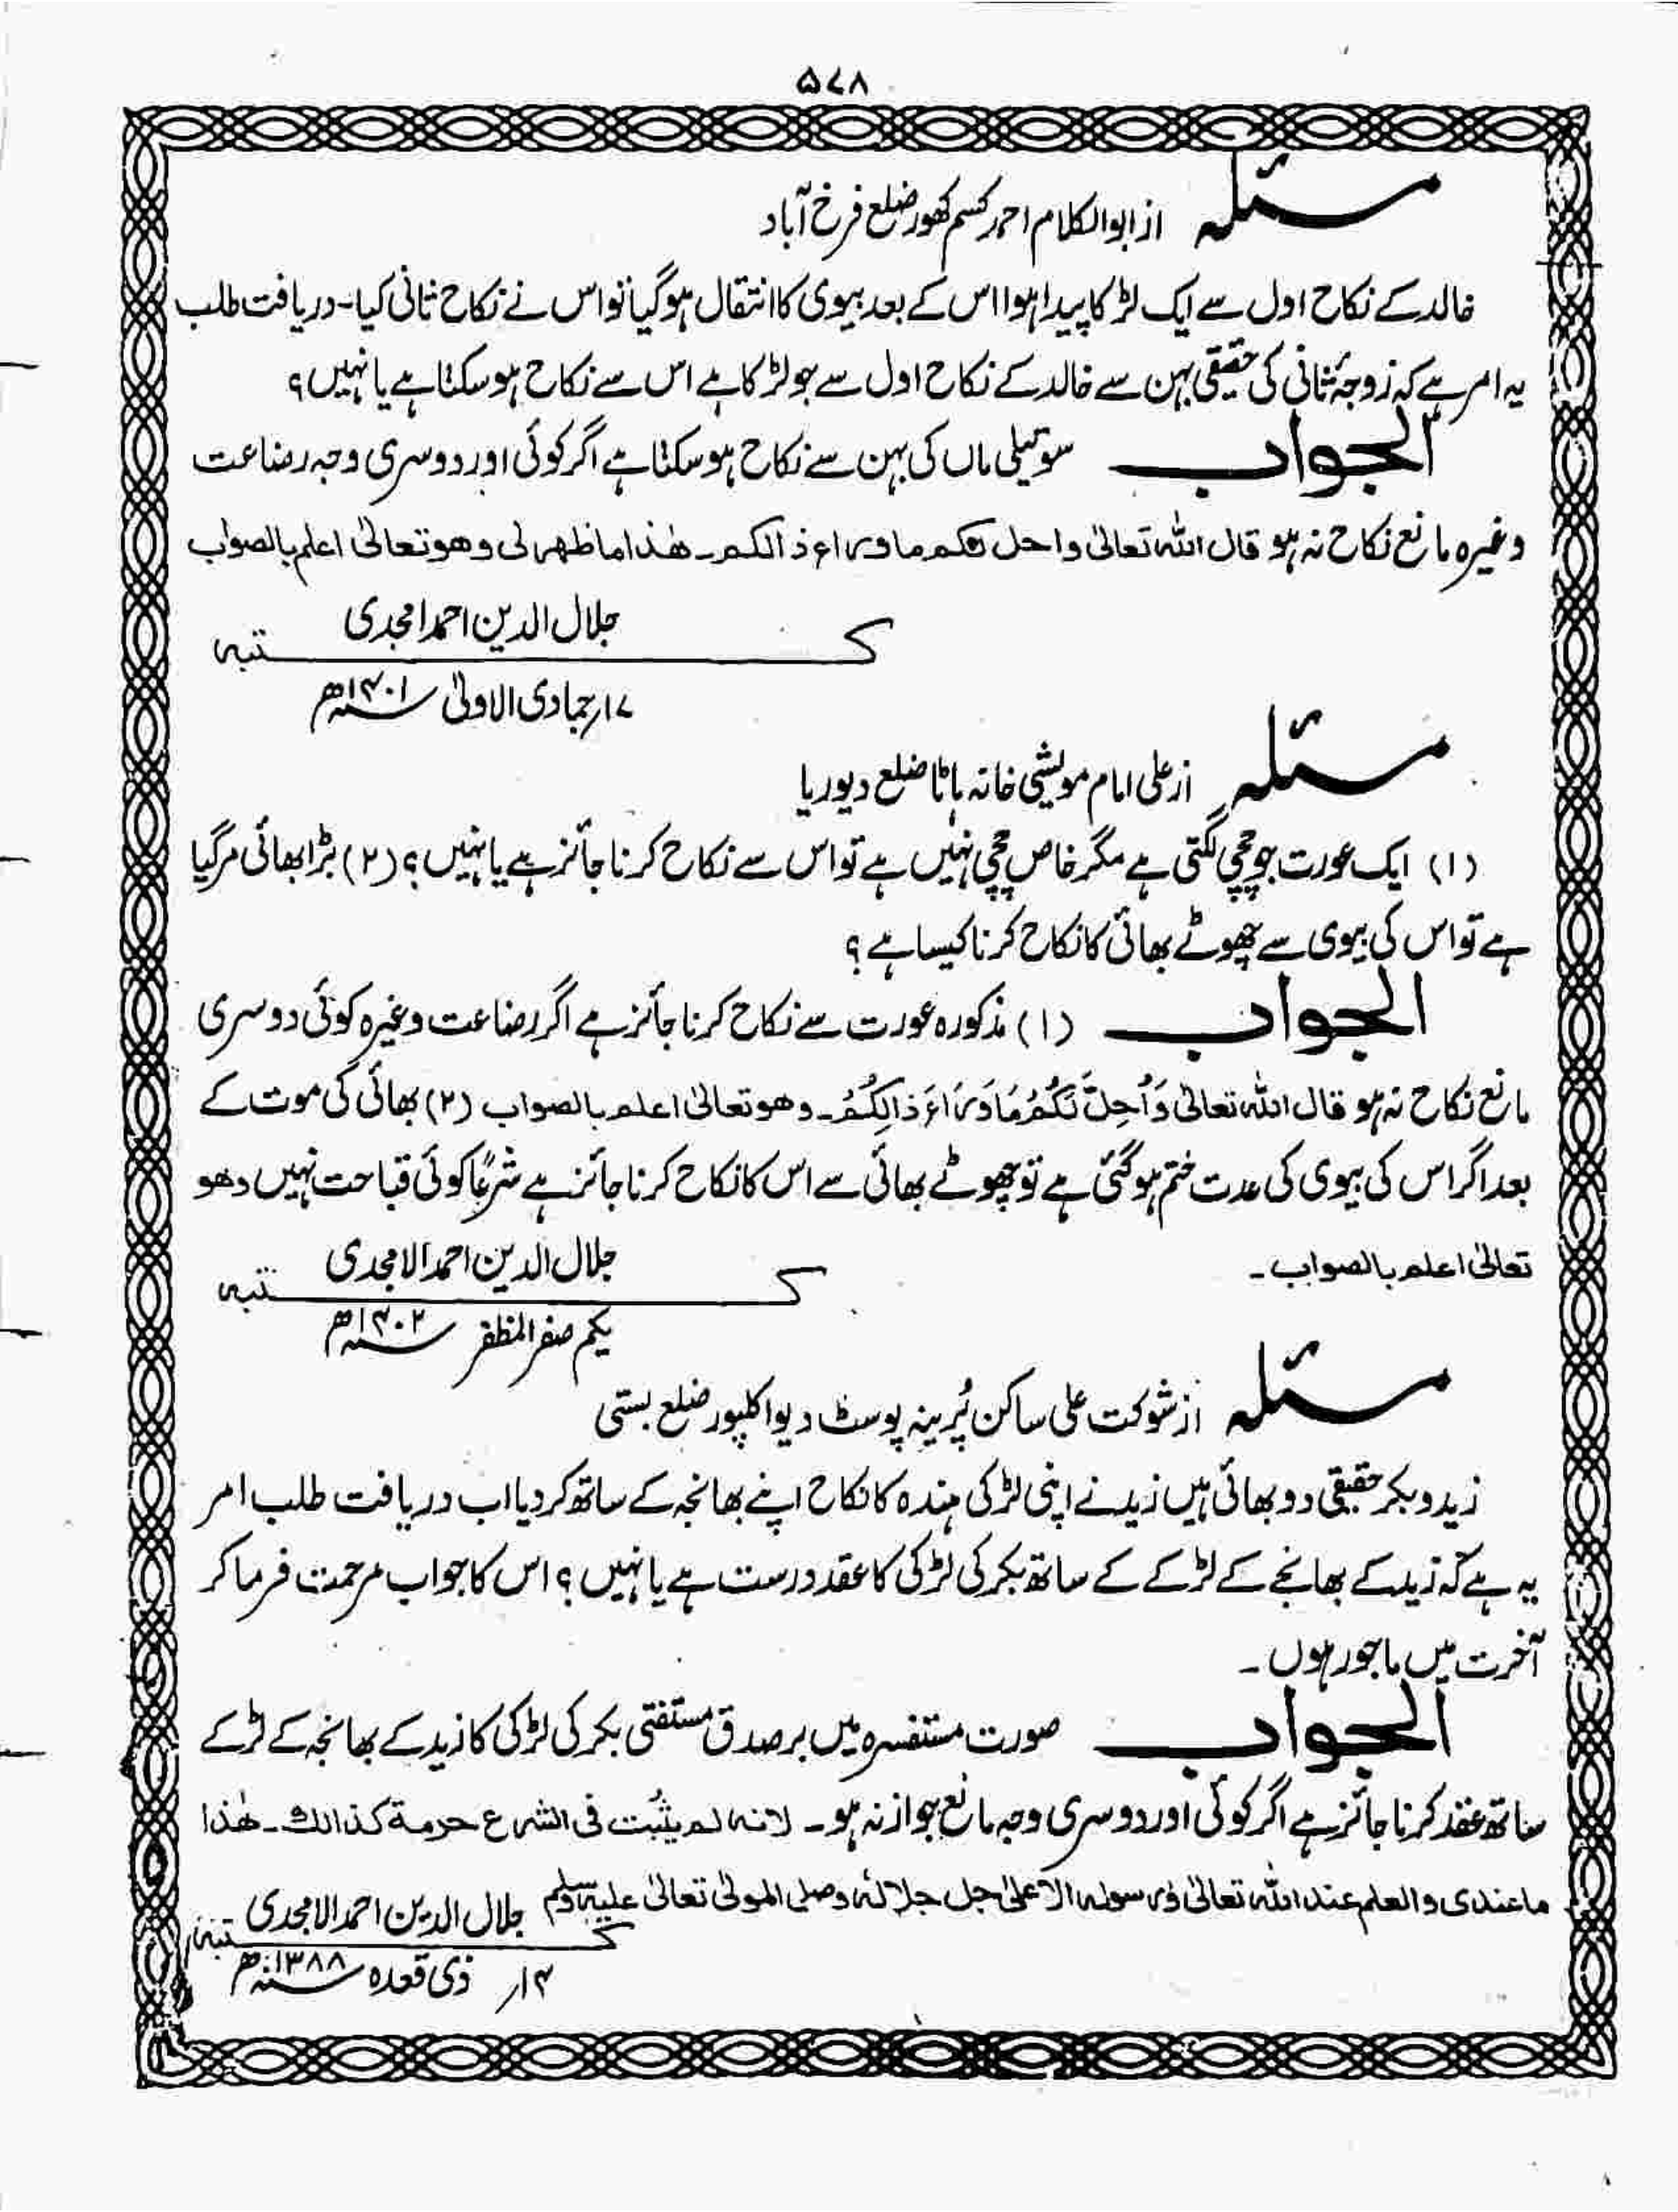 ۵۷۸
مسئلہ از ابوالکلام احمد کسم کھور ضلع فرخ آباد
خالد کے نکاح اول سے ایک لڑکا پیدا ہوا اس کے بعد بیوی کا انتقال ہو گیا تو اس نے نکاح ثانی کیا۔ دریافت طلب
یہ امر ہے کہ زوجۂ ثانی کی حقیقی بہن سے خالد کے نکاح اول سے جو لڑکا ہے اس سے نکاح ہو سکتا ہے یا نہیں؟
الجواب سوتیلی ماں کی بہن سے نکاح ہو سکتا ہے اگر کوئی اور دوسری وجہ رضاعت
وغیرہ مانع نکاح نہ ہو قال اللہ تعالیٰ واحل لکم ما وراء ذالکم۔ ھٰذا ما ظھر لی وھو تعالیٰ اعلم بالصواب
جلال الدین احمد امجدی
کتبہ
۱۷؍ جمادی الاولیٰ ۱۴۰۱ھ
مسئلہ از علی امام مویشی خانہ ہاٹا ضلع دیوریا
(۱) ایک عورت جو چچی لگتی ہے مگر خاص چچی نہیں ہے تو اس سے نکاح کرنا جائز ہے یا نہیں؟ (۲) بڑا بھائی مر گیا
ہے تو اس کی بیوی سے چھوٹے بھائی کا نکاح کرنا کیسا ہے؟
الجواب (۱) مذکورہ عورت سے نکاح کرنا جائز ہے اگر رضاعت وغیرہ کوئی دوسری
مانع نکاح نہ ہو قال اللہ تعالیٰ وَاُحِلَّ لَکُمْ مَا وَرَاءَ ذَالِکُمْ۔ وھو تعالیٰ اعلم بالصواب (۲) بھائی کی موت کے
بعد اگر اس کی بیوی کی عدت ختم ہو گئی ہے تو چھوٹے بھائی سے اس کا نکاح کرنا جائز ہے شرعًا کوئی قباحت نہیں وھو
تعالیٰ اعلم بالصواب۔
جلال الدین احمد الامجدی
کتبہ
یکم صفر المظفر ۱۴۰۲ھ
مسئلہ از شوکت علی ساکن پُرینہ پوسٹ دیوا کلپور ضلع بستی
زید و بکر حقیقی دو بھائی ہیں زید نے اپنی لڑکی ہندہ کا نکاح اپنے بھانجہ کے ساتھ کر دیا اب دریافت طلب امر
یہ ہے کہ زید کے بھانجے کے لڑکے کے ساتھ بکر کی لڑکی کا عقد درست ہے یا نہیں؟ اس کا جواب مرحمت فرما کر
آخرت میں ماجور ہوں۔
الجواب صورت مستفسرہ میں بر صدق مستفتی بکر کی لڑکی کا زید کے بھانجہ کے لڑکے
ساتھ عقد کرنا جائز ہے اگر کوئی اور دوسری وجہ مانع جواز نہ ہو۔ لانہ لم یثبت فی الشرع حرمۃ کذالک۔ ھٰذا
ما عندی والعلم عند اللہ تعالیٰ ورسولہ الاعلیٰ جل جلالہ وصلی المولیٰ تعالیٰ علیہ وسلم
جلال الدین احمد الامجدی
کتبہ
۱۴؍ ذی قعدہ ۱۳۸۸ھ